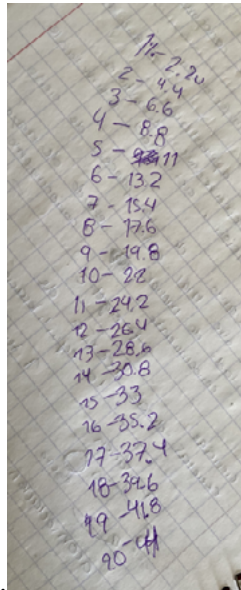 1 - 2.20
2 - 4.4
3 - 6.6
4 - 8.8
5 - 11
6 - 13.2
7 - 15.4
8 - 17.6
9 - 19.8
10 - 22
11 - 24.2
12 - 26.4
13 - 28.6
14 - 30.8
15 - 33
16 - 35.2
17 - 37.4
18 - 39.6
19 - 41.8
20 - 44